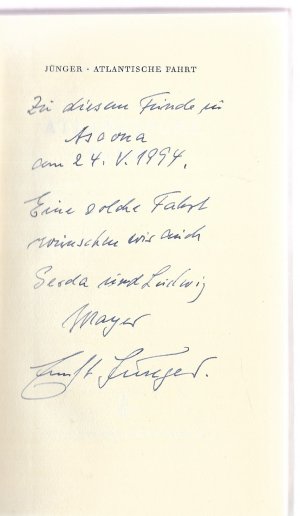 JÜNGER · ATLANTISCHE FAHRT
Zu diesem Funde in
Ascona
am 24. V. 1994.
Eine solche Fahrt
wünschen wir auch
Gerda und Ludwig
Mayer
Ernst Jünger.